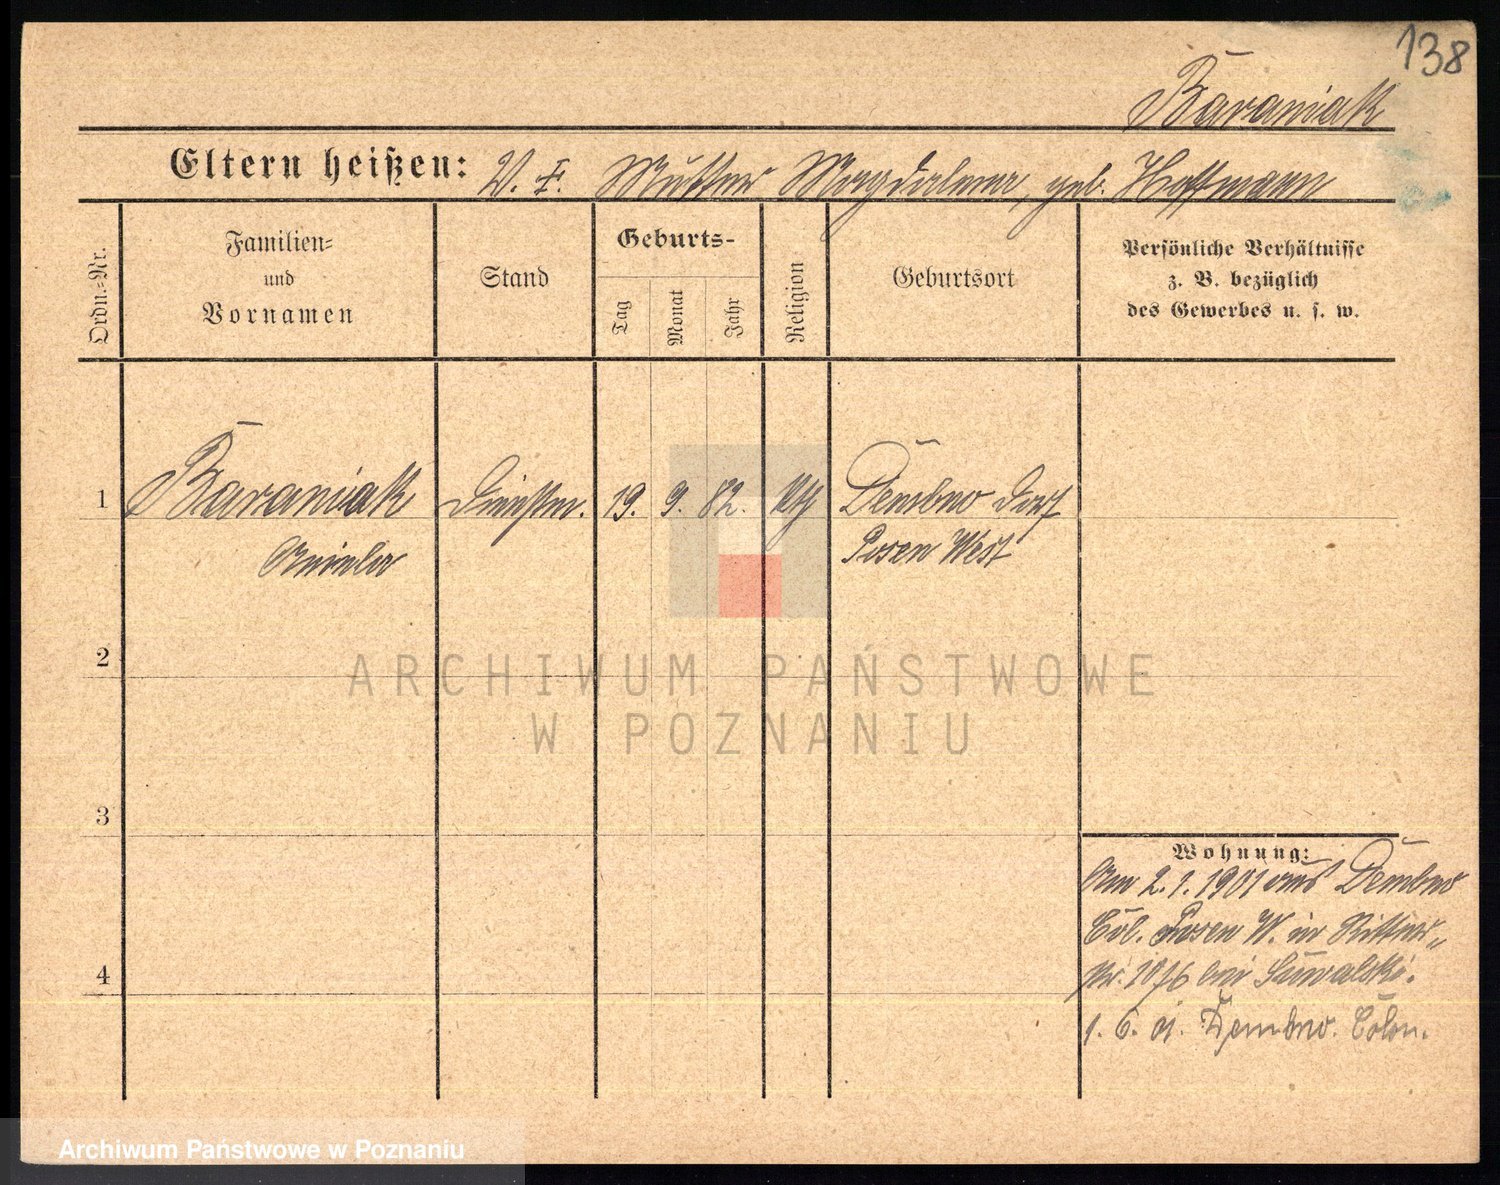 138
Baraniak
Eltern heißen: V. †. Mutter Magdalena, geb. Hoffmann
Ordn.-Nr.
Familien- und Vornamen
Stand
Geburts-
Tag
Monat
Jahr
Religion
Geburtsort
Persönliche Verhältnisse
z. B. bezüglich
des Gewerbes u. s. w.
1 Baraniak Dienstm. 19. 9. 82. kth Dembno Dorf
Posen West
2
ARCHIWUM PAŃSTWOWE
W POZNANIU
3
Wohnung:
Am 2. 1. 1901 aus Dembno
Col. Posen W. in Ritter„
str. bei Suwalski.
1. 6. 01. Dembno. Colon.
4
Archiwum Państwowe w Poznaniu